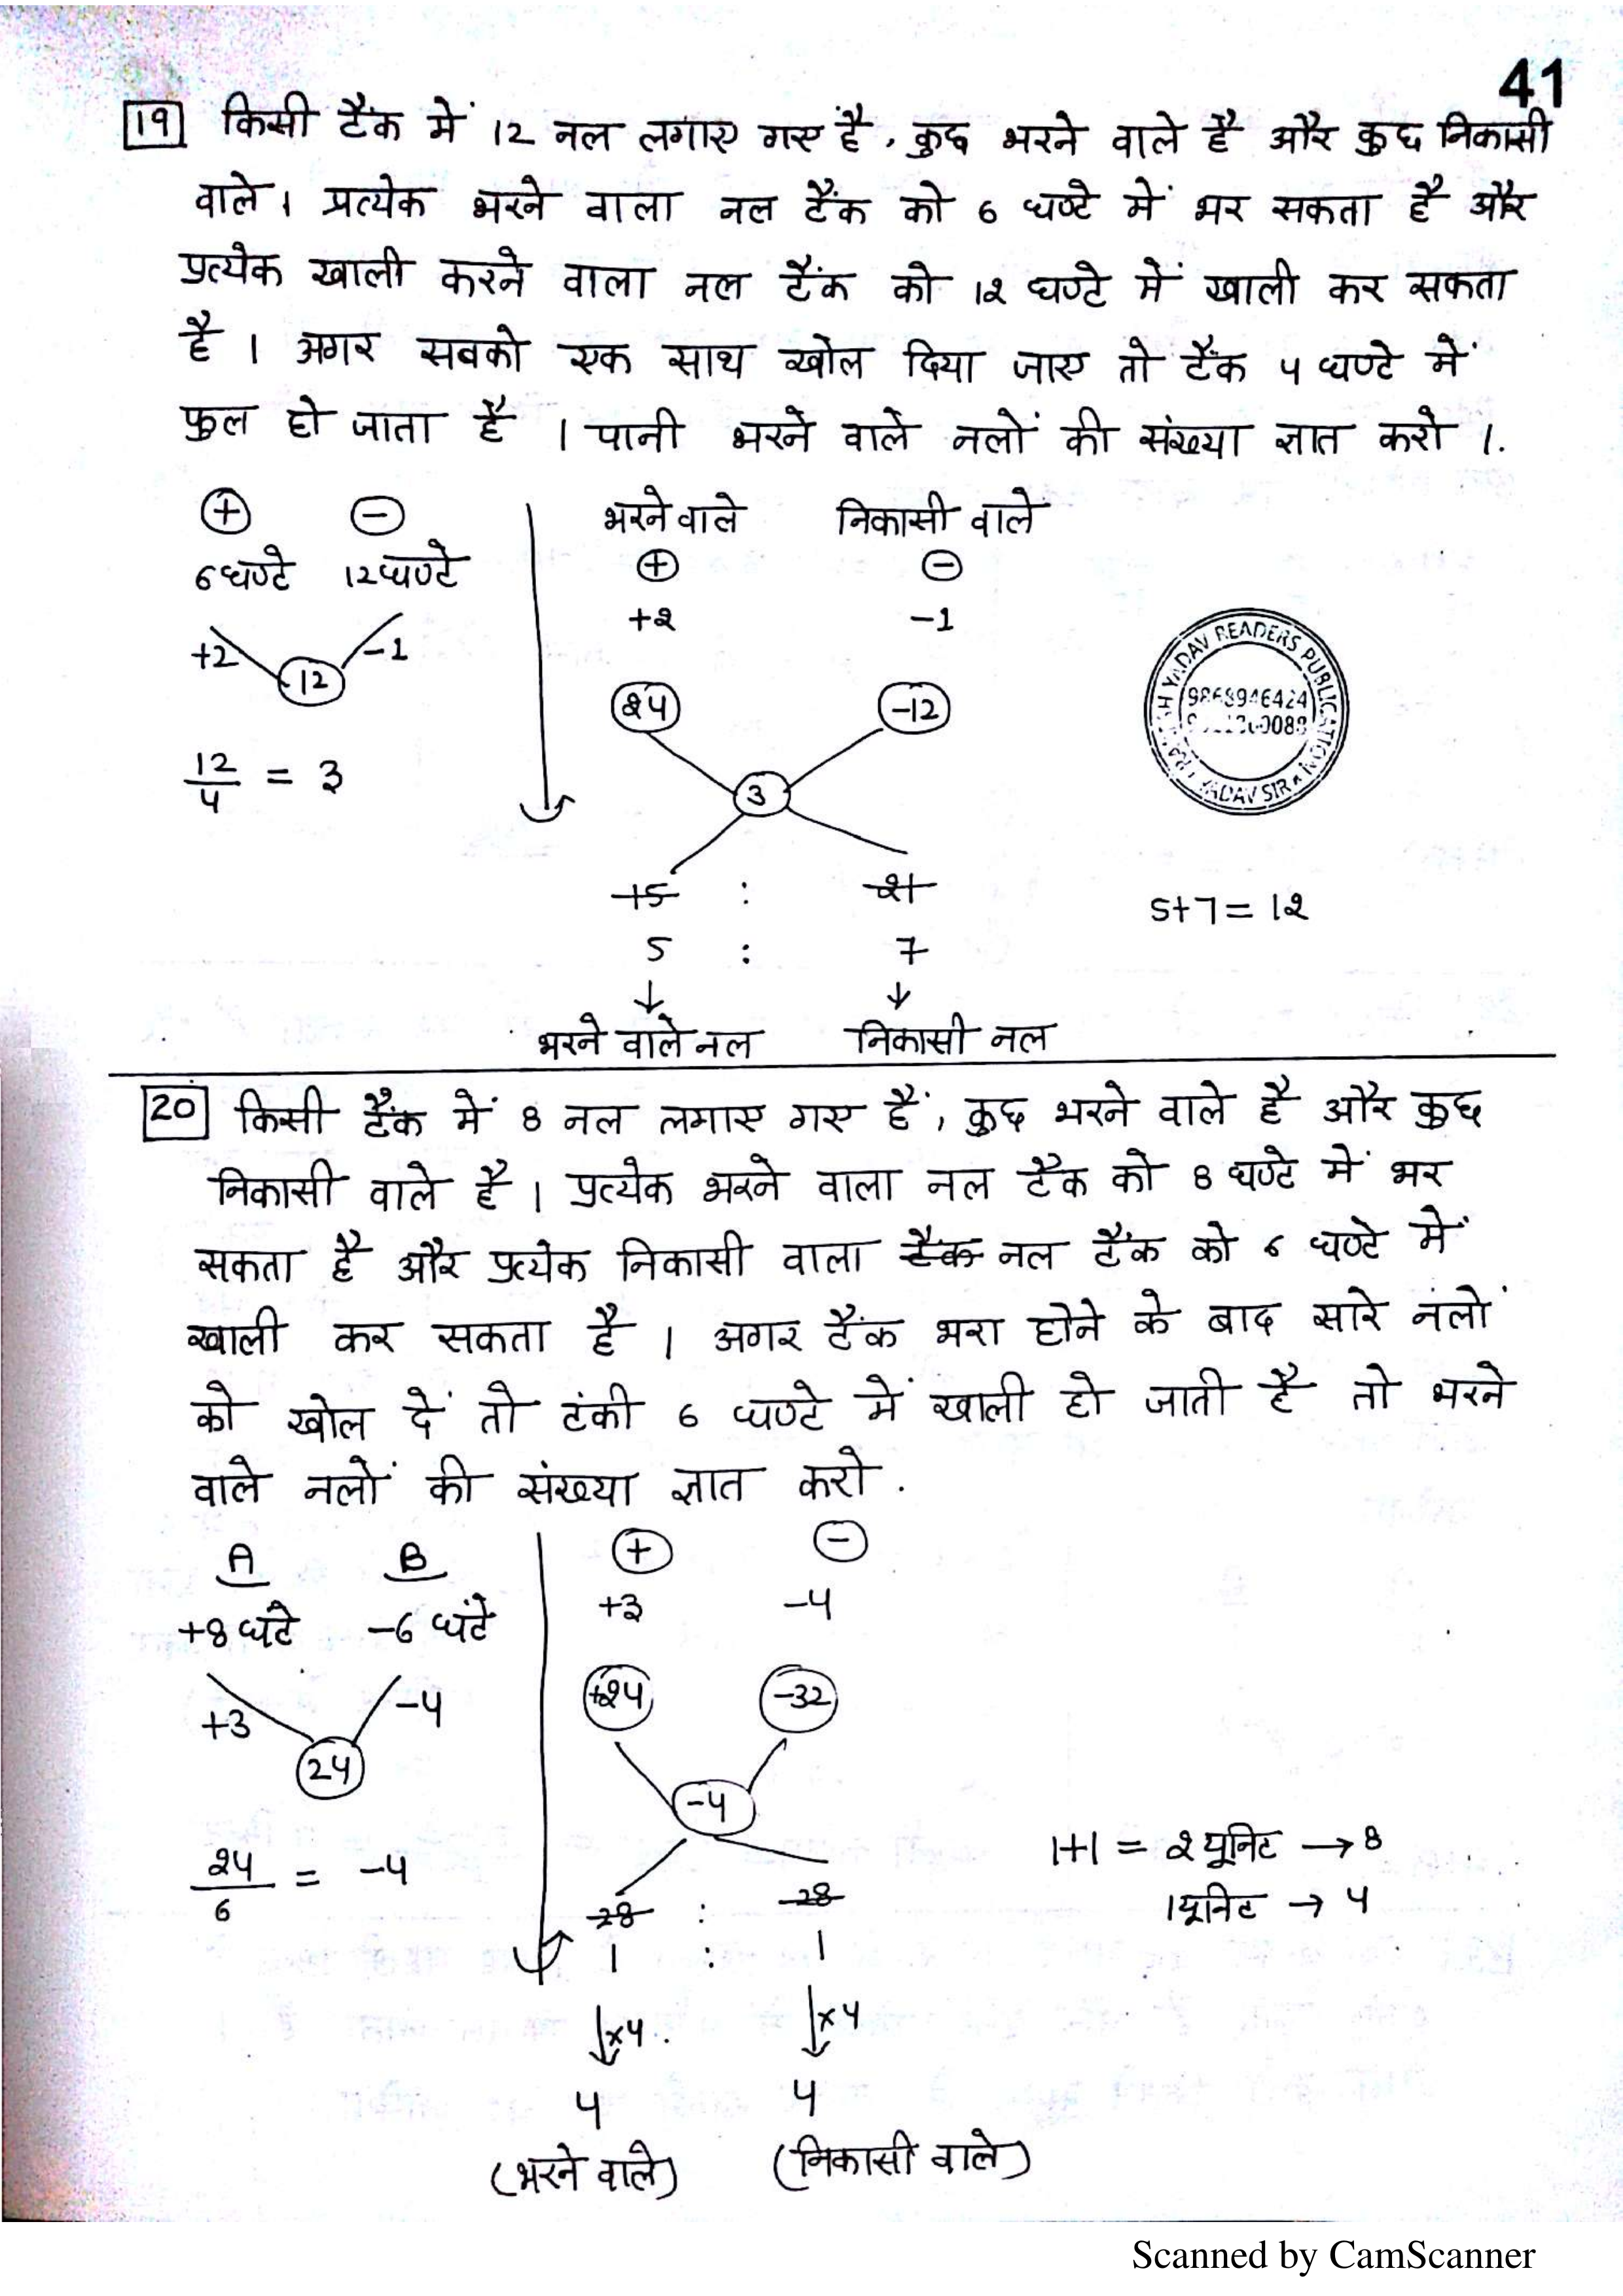 41
19 किसी टैंक में 12 नल लगाए गए है, कुछ भरने वाले है और कुछ निकासी
वाले। प्रत्येक भरने वाला नल टैंक को 6 घण्टे में भर सकता है और
प्रत्येक खाली करने वाला नल टैंक को 12 घण्टे में खाली कर सकता
है। अगर सबको एक साथ खोल दिया जाए तो टैंक 4 घण्टे में
फुल हो जाता है। पानी भरने वाले नलों की संख्या ज्ञात करो।.
+ - भरने वाले निकासी वाले
6 घण्टे 12 घण्टे + -
+2 -1 +2 -1
12
24 -12
12/4 = 3
3
15 : 21
5+7=12
5 : 7
↓ ↓
भरने वाले नल निकासी नल
YADAV READERS PUBLICATION
9868946424
YADAV SIR
20 किसी टैंक में 8 नल लगाए गए हैं, कुछ भरने वाले है और कुछ
निकासी वाले है। प्रत्येक भरने वाला नल टैंक को 8 घण्टे में भर
सकता है और प्रत्येक निकासी वाला टैंक नल टैंक को 6 घण्टे में
खाली कर सकता है। अगर टैंक भरा होने के बाद सारे नलों
को खोल दें तो टंकी 6 घण्टे में खाली हो जाती है तो भरने
वाले नलों की संख्या ज्ञात करो.
A B + -
+8 घंटे -6 घंटे +3 -4
+3 -4 +24 -32
24
-4
24/6 = -4
1+1 = 2 यूनिट → 8
1 यूनिट → 4
28 : 28
1 : 1
↓×4. ↓×4
4 4
(भरने वाले) (निकासी वाले)
Scanned by CamScanner